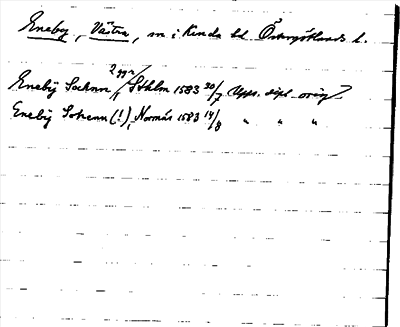 Eneby, Västra, sn i Kinda hd. Östergötlands l.
2 ggr
Enebÿ Socknn / Sthlm 1583 20/7 Upps. dipl. orig.
Enebÿ Sockenn (!), Normås 1583 14/8 " " "